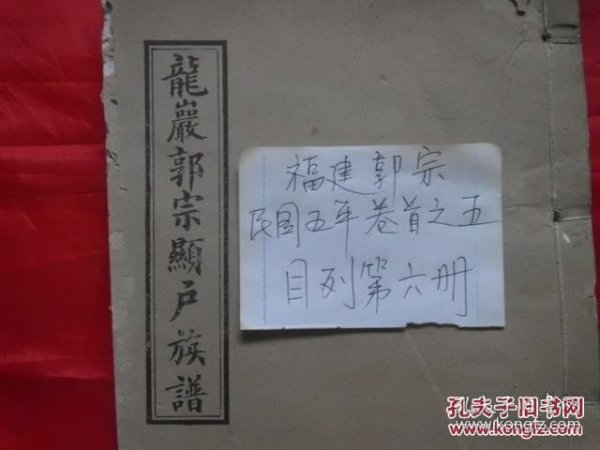 龍巖郭宗顯戶族譜
福建郭宗
民国五年卷首之五
目列第六册
孔夫子旧书网
www.kongfz.com